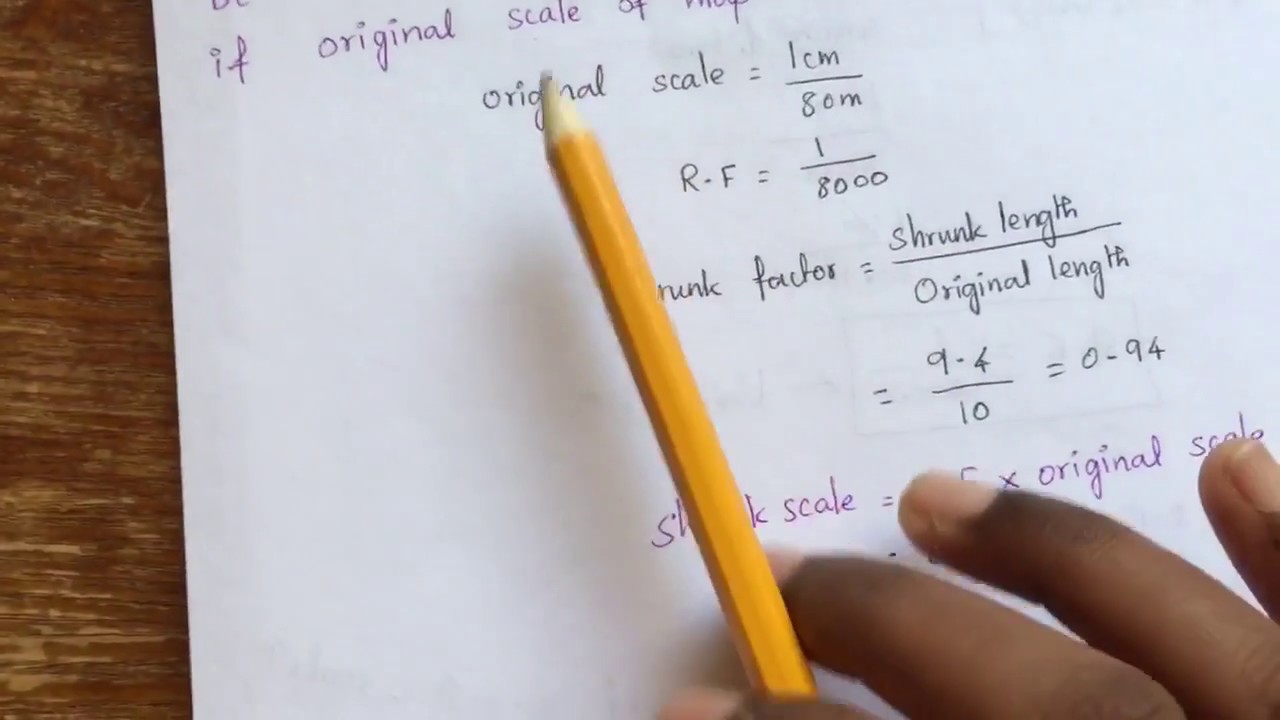 if original scale of map
original scale = 1cm / 80m
R.F = 1 / 8000
runk factor = shrunk length / Original length
= 9.4 / 10 = 0.94
k scale = × original scale